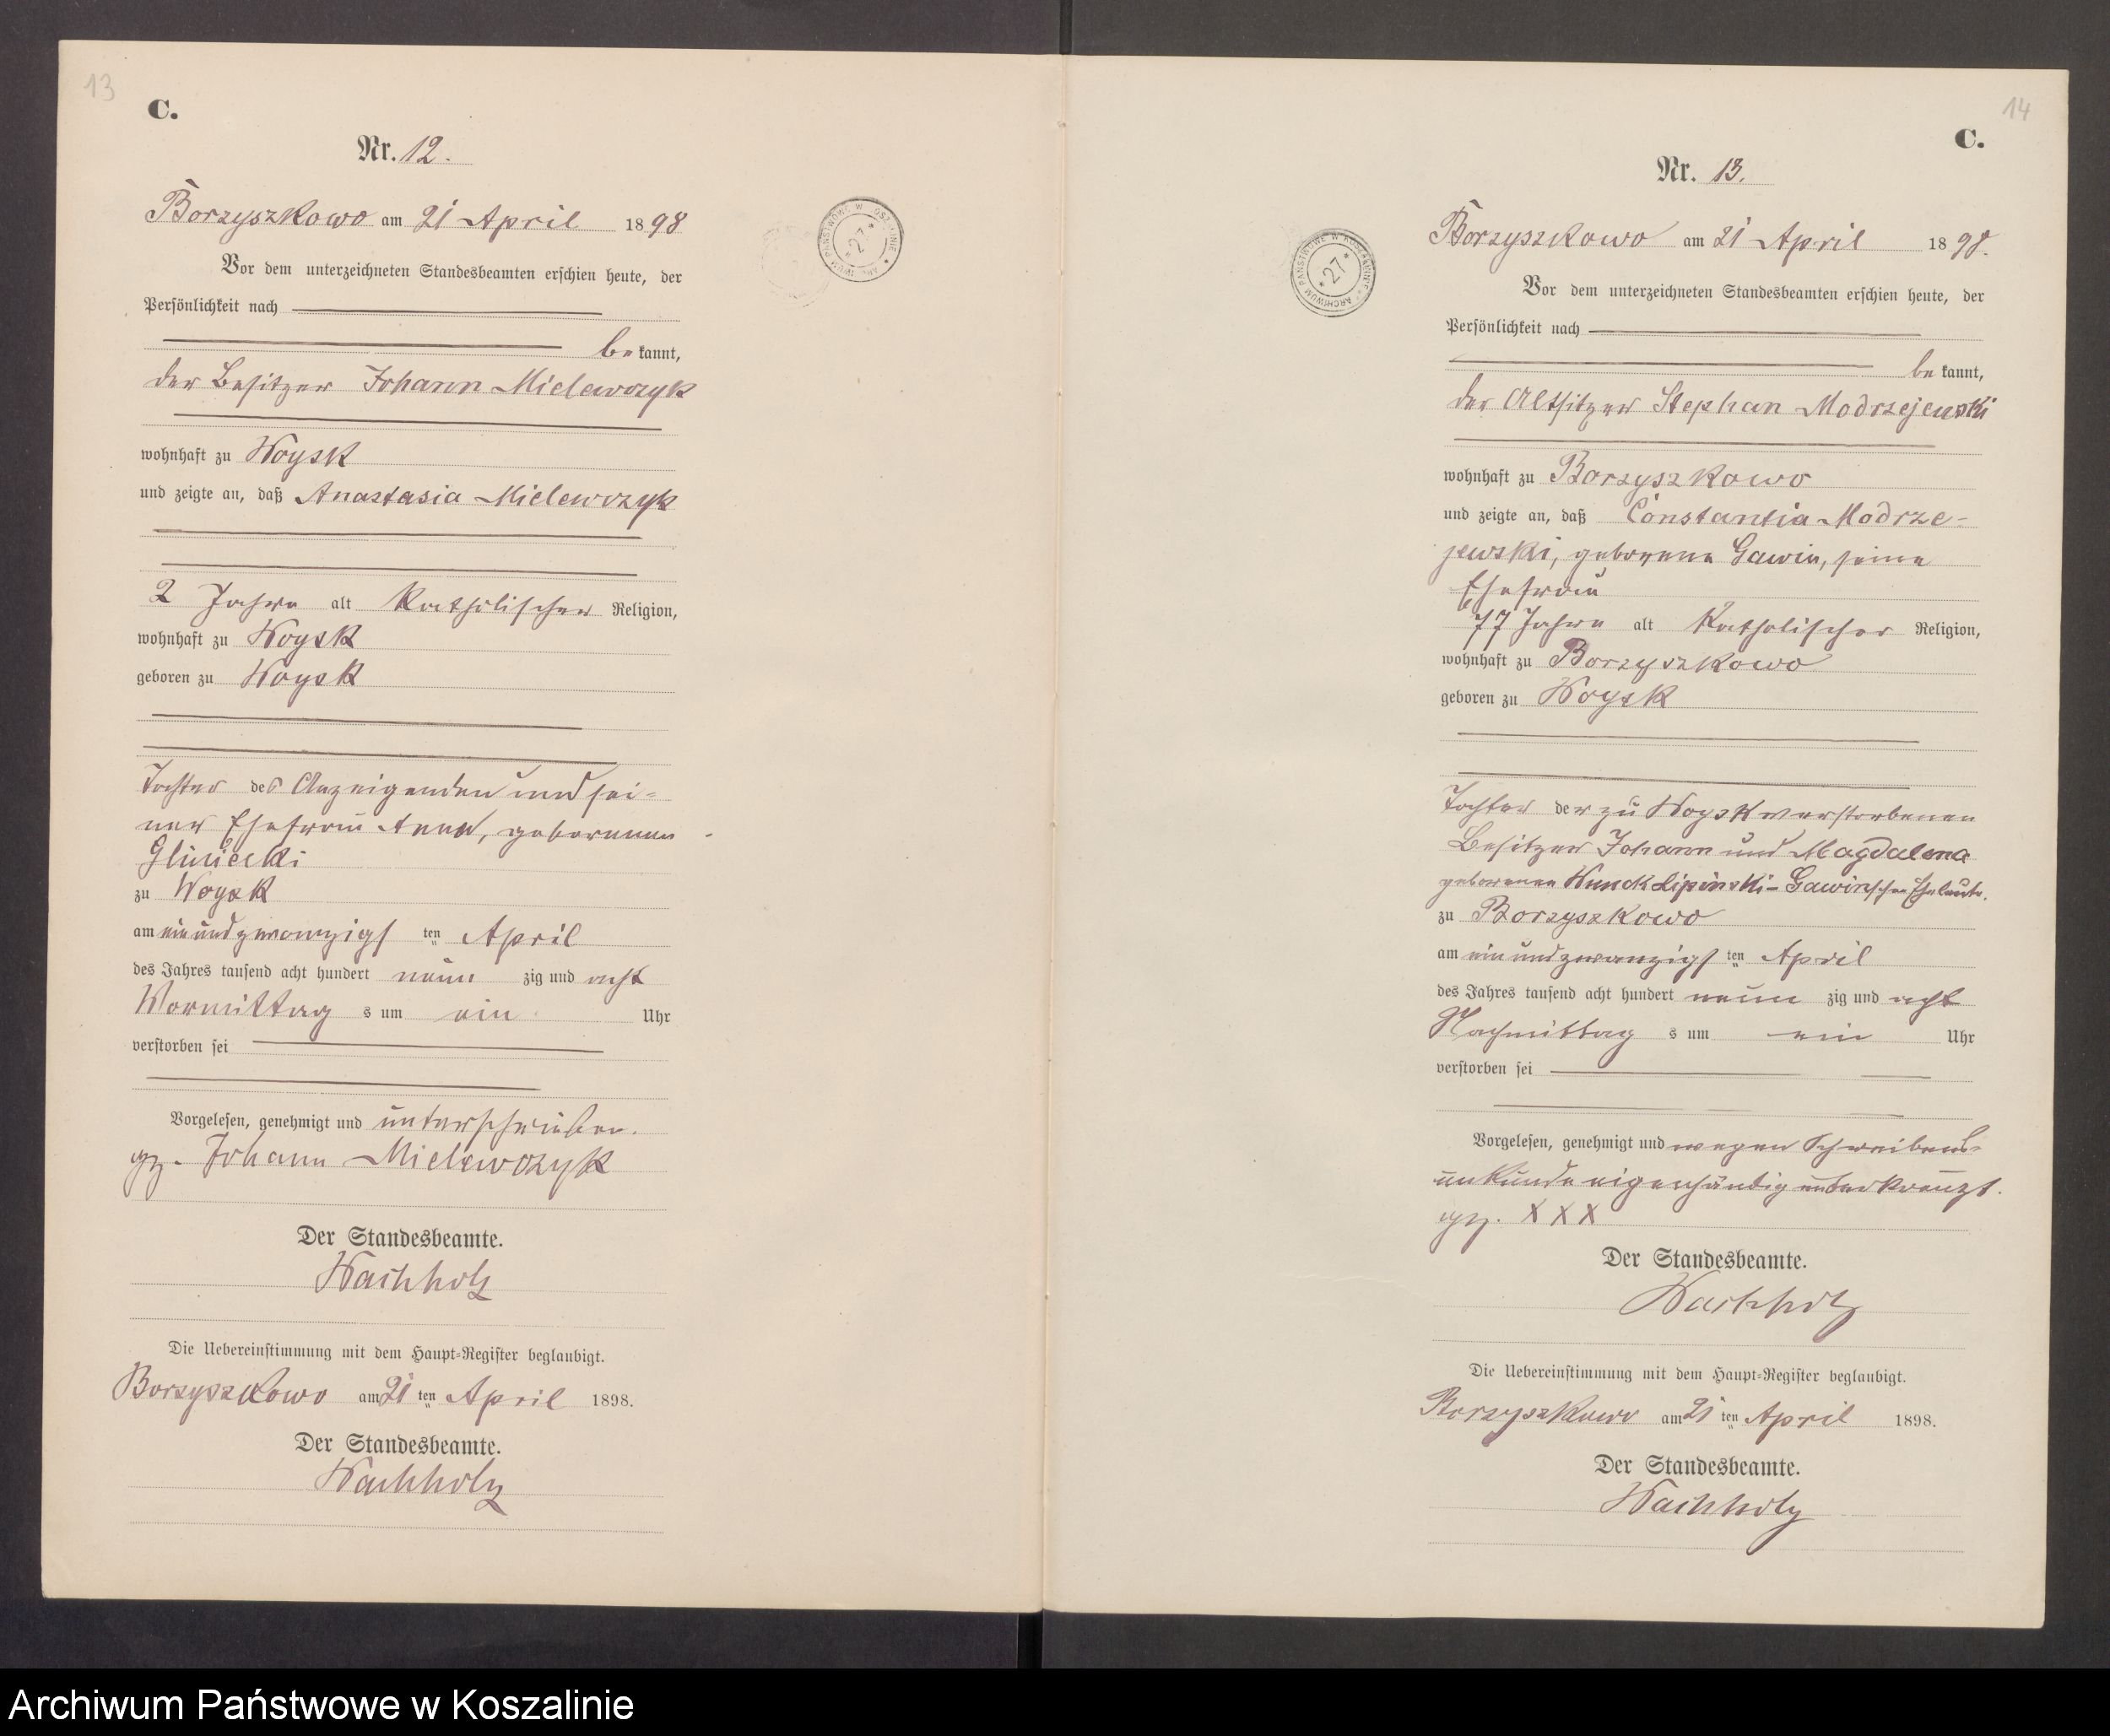 13
C.
Nr. 12.
Borzyszkowo am 21 April 1898
Vor dem unterzeichneten Standesbeamten erschien heute, der
Persönlichkeit nach
bekannt,
der Besitzer Johann Mielewczyk
wohnhaft zu Woysk
und zeigte an, daß Anastasia Mielewczyk
2 Jahre alt Katholischer Religion,
wohnhaft zu Woysk
geboren zu Woysk
Tochter des Anzeigenden und sei=
ner Ehefrau Anna, geborenen
Gliniecki
zu Woysk
am einundzwanzigsten April
des Jahres tausend acht hundert neunzig und acht
Vormittags um ein Uhr
verstorben sei
Vorgelesen, genehmigt und unterschrieben.
gz. Johann Mielewczyk
Der Standesbeamte.
Wachholz
Die Uebereinstimmung mit dem Haupt=Register beglaubigt.
Borzyszkowo am 21ten April 1898.
Der Standesbeamte.
Wachholz
ARCHIWUM PAŃSTWOWE W KOSZALINIE * 27 *
14
C.
Nr. 13.
Borzyszkowo am 21 April 1898.
Vor dem unterzeichneten Standesbeamten erschien heute, der
Persönlichkeit nach
bekannt,
der Altsitzer Stephan Modrzejewski
wohnhaft zu Borzyszkowo
und zeigte an, daß Constantia Modrze-
jewski, geborene Gawin, seine
Ehefrau
77 Jahre alt Katholischer Religion,
wohnhaft zu Borzyszkowo
geboren zu Woysk
Tochter der zu Woysk verstorbenen
Besitzer Johann und Magdalena
geborenen Wnuck Lipinski-Gawinschen Eheleute.
zu Borzyszkowo
am einundzwanzigsten April
des Jahres tausend acht hundert neunzig und acht
Nachmittags um ein Uhr
verstorben sei
Vorgelesen, genehmigt und wegen Schreibens-
unkunde eigenhändig unterkreuzt.
gz. X X X
Der Standesbeamte.
Wachholz
Die Uebereinstimmung mit dem Haupt=Register beglaubigt.
Borzyszkowo am 21ten April 1898.
Der Standesbeamte.
Wachholz
ARCHIWUM PAŃSTWOWE W KOSZALINIE * 27 *
Archiwum Państwowe w Koszalinie